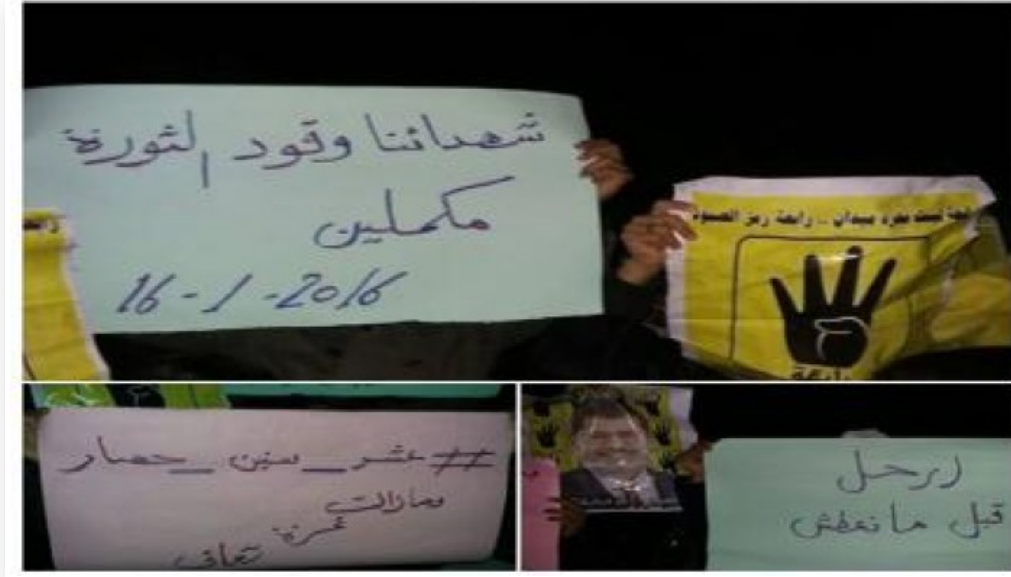 شهدائنا وقود الثورة
مكملين
16-1-2016
رابعة ليست مجرد ميدان .. رابعة رمز الصمود
رابعة
#عشر_سنين_حصار
ومازالت
غزة
تعاني
ارحل
قبل ما نعطش